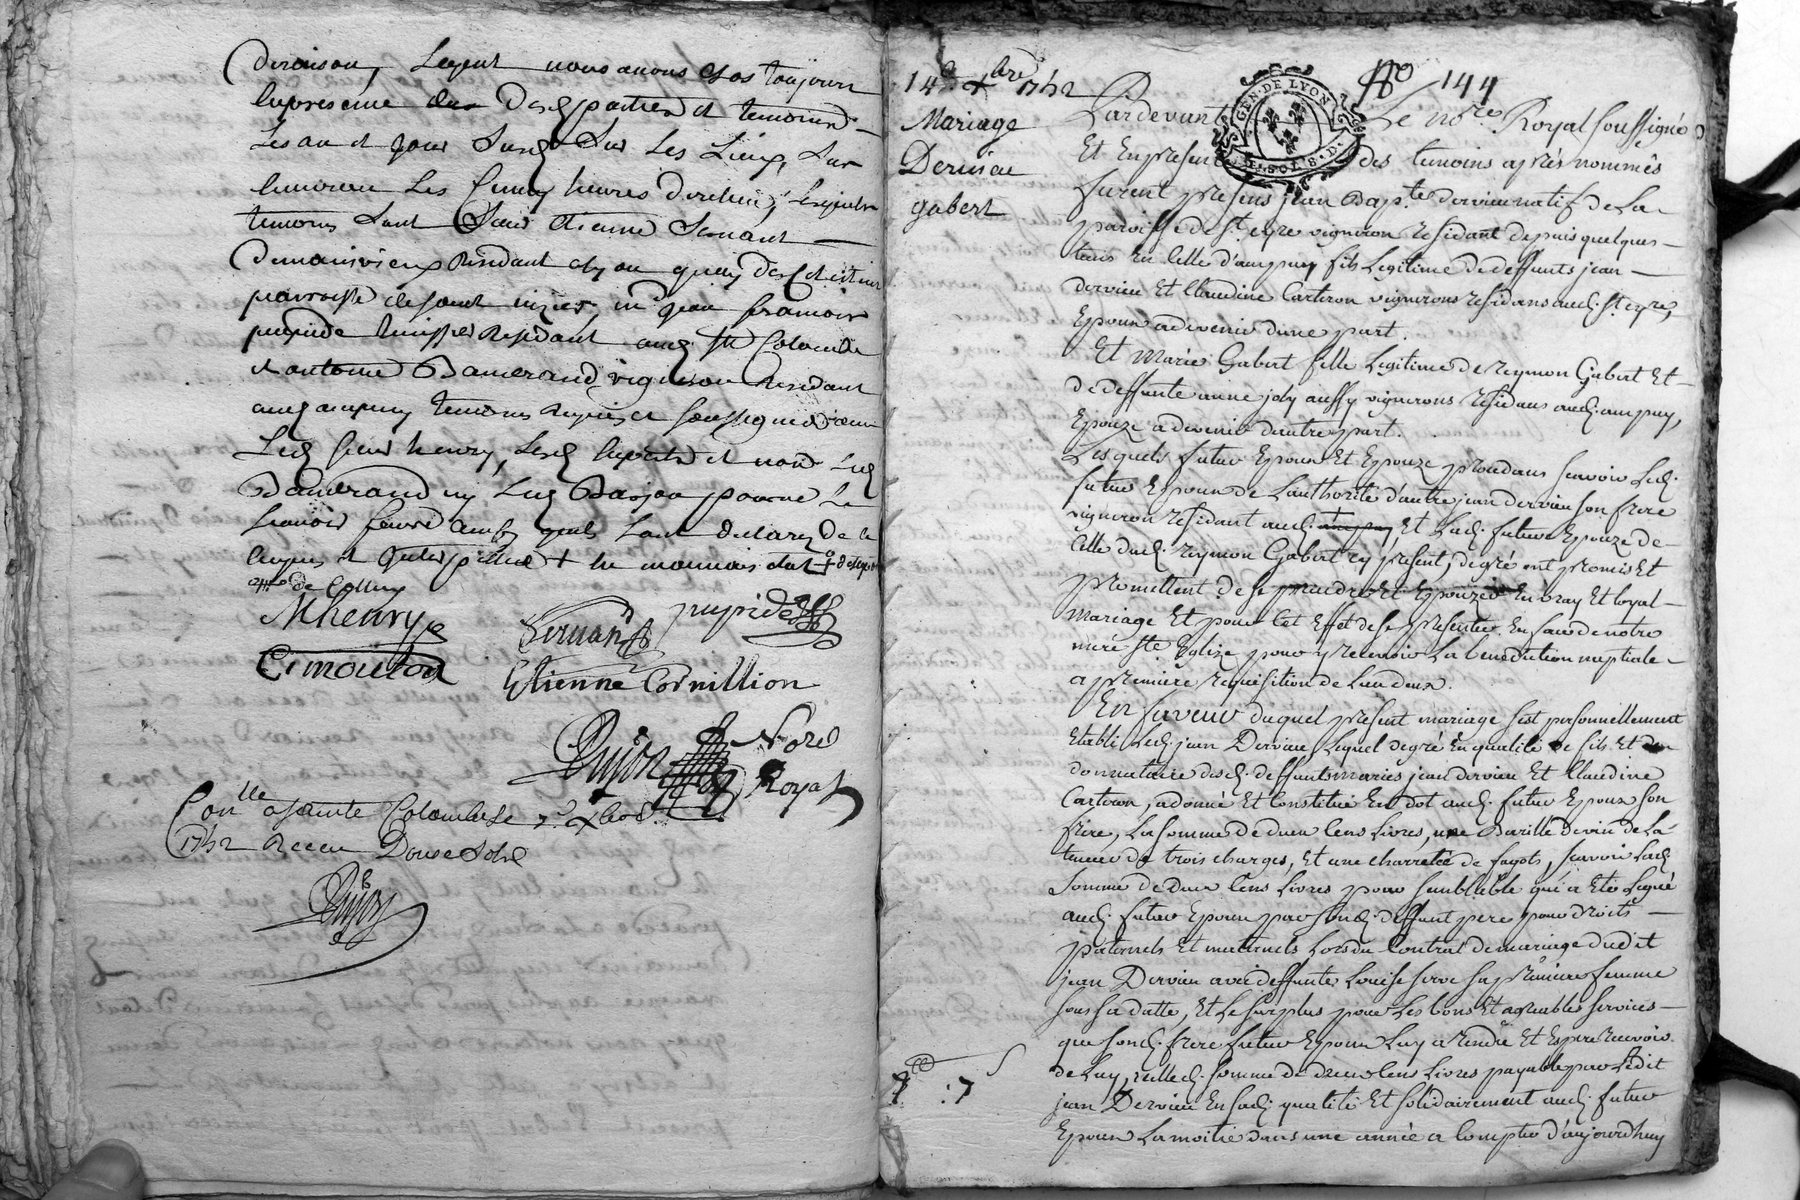 nous avons clos toujours
en presence des parties et temoins
Les an et jour susd. sur Les
Les Cinq heures
temoins sont Sieur Etienne Servant
Residant a Lyon quay des Celestins
parroisse de saint nizier, jean francois
pupide huissier Residant aud. Ste Colombe
et antoine vigneron Residant
aud. ampuy temoins requis et soussignés avec
Led. sieur henry, et non Led.
de ce
enquis et
de Colleny
Mhenry
Servant
pupide
C. mouton
Etienne Cornillion
Dujon Nore
Royal
Con.lle a sainte Colombe 7e Xbre
1742 Receu Douse Sols
Dujon
14e Xbre 1742
Mariage
Dervieu
gabert
No 144
GEN. DE LYON
SOLS. D.
Pardevant Le nore Royal soussigné
Et En presence des temoins après nommés
furent presens jean Bap.te dervieu natif de La
paroisse de St. cyre vigneron residant depuis quelques
tems En Celle d'ampuy fils Legitime de deffunts jean
dervieu Et Claudine Carteron vignerons residans aud. St. cyre,
Epoux a devenir d'une part.
Et Marie Gabert fille Legitime de reymon Gabert Et
de deffunte anne joly aussy vignerons residans aud. ampuy,
Epouze a devenir d'autre part.
Lesquels futur Epoux Et Epouze procedans scavoir Led.
futur Epoux de L'authorité d'autre jean dervieu son frere
vigneron residant aud. ampuy, Et Lad. future Epouze de
Celle dud. reymon Gabert cy present, de gré ont promis Et
promettent de se prendre Et Epouzer En vray Et loyal
mariage Et pour Cet Effet de se presenter En face de notre
mere Ste Eglize pour y recevoir La benediction nuptiale
a premiere requisition de L'un deux.
En faveur duquel present mariage s'est personnellement
Etabli Led. jean Dervieu Lequel de gré En qualité de fils Et
donnataire desd. deffunts mariés jean dervieu Et Claudine
Carteron, a donné Et Constitué En dot aud. futur Epoux son
frere, La somme de deux Cens Livres, une Barille de vin de La
teneur de trois charges, Et une charretée de fagots, scavoir Lad.
somme de deux Cens Livres pour semblable qu'a eté Legué
aud. futur Epoux par sond. deffunt pere pour droits
paternels Et maternels Lors du Contrat de mariage dudit
jean Dervieu avec deffunte Louise serve sa premiere femme
sous sa datte, Et Le surplus pour Les bons Et agreables services
que sond. frere futur Epoux Luy a rendu Et Espere recevoir
de Luy, icelle d. somme de deux Cens Livres payable par Ledit
jean Dervieu En sad. qualité Et solidairement aud. futur
Epoux La moitié dans une année a Compter d'aujourdhuy
:7